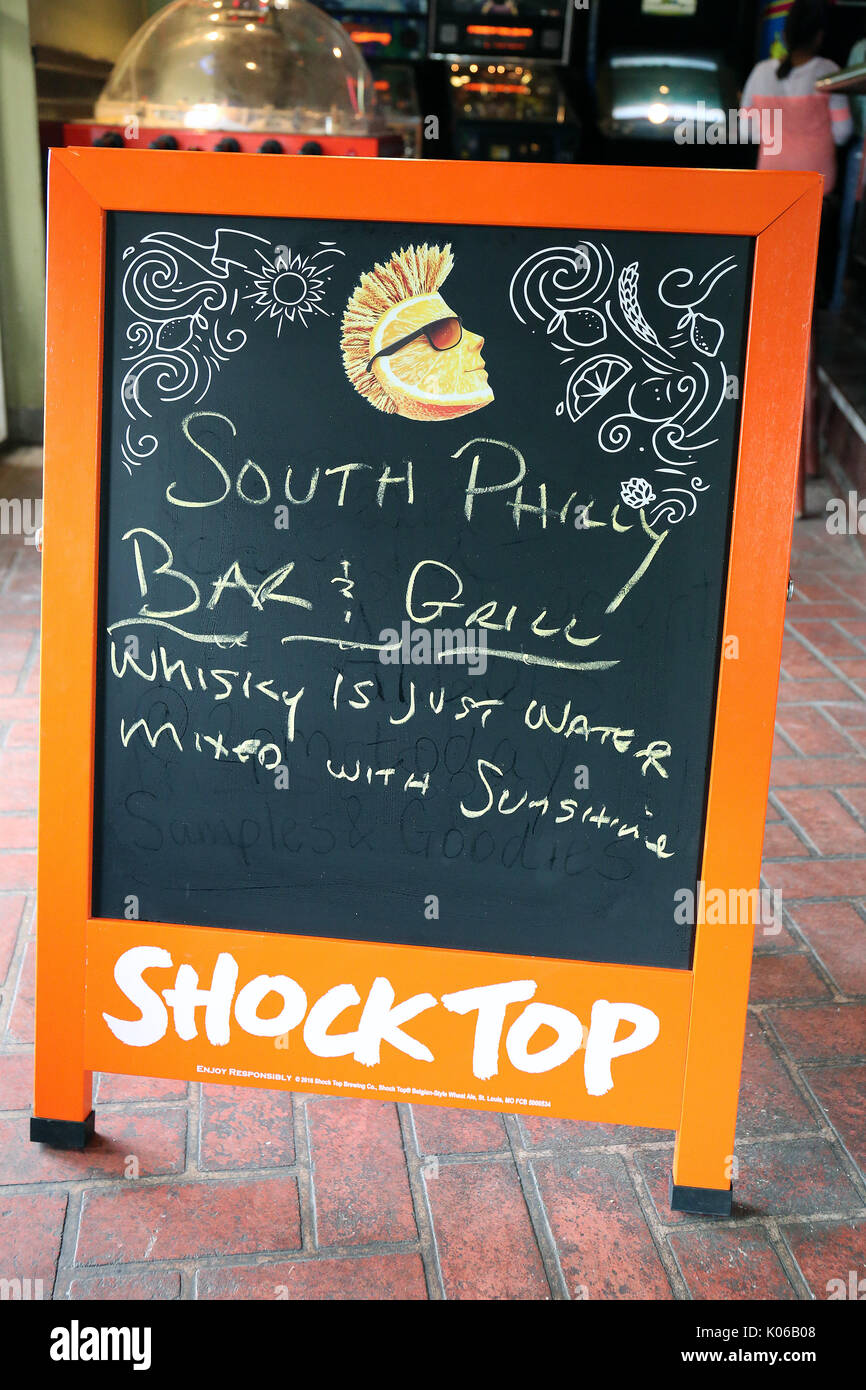 South Philly
Bar & Grill
Whisky is just water
mixed with Sunshine
@ 2pm today
Samples & Goodies
SHOCK TOP
ENJOY RESPONSIBLY © 2015 Shock Top Brewing Co., Shock Top® Belgian-Style Wheat Ale, St. Louis, MO
alamy
alamy
Image ID: K06B08
www.alamy.com